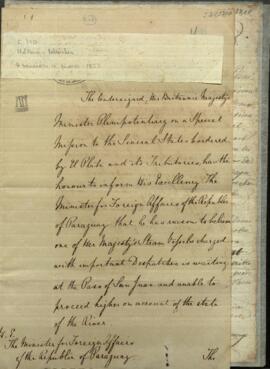 The Undersigned, Her Britannic Majesty's
Minister Plenipotentiary on a Special
Mission to the several States bordered
by El Plata and its Tributaries, has the
honour to inform His Excellency The
Minister for Foreign Affairs of the Republic
of Paraguay that he has reason to believe
one of Her Majesty's Steam Vessels charged
with important Despatches is waiting
at the Paso of San Juan and unable to
proceed higher on account of the state
of the River.
The Minister for Foreign Affairs
of the Republic of Paraguay
The